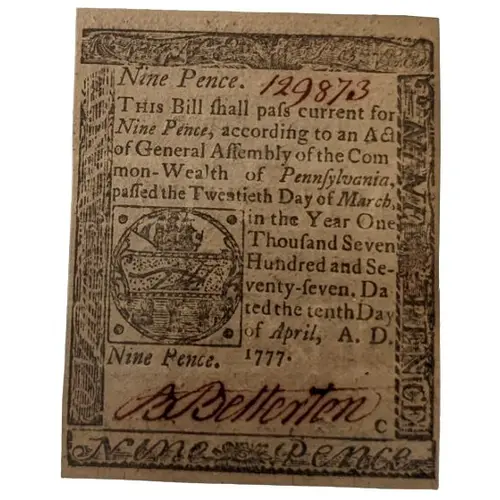 Nine Pence. 129873
THIS Bill ſhall paſs current for
Nine Pence, according to an Act
of General Aſſembly of the Com
mon-Wealth of Pennſylvania,
paſſed the Twentieth Day of March,
in the Year One
Thouſand Seven
Hundred and Se-
venty-ſeven. Da
ted the tenth Day
of April, A. D.
Nine Pence. 1777.
B. Betterton
C
NINE PENCE
Nine Pence